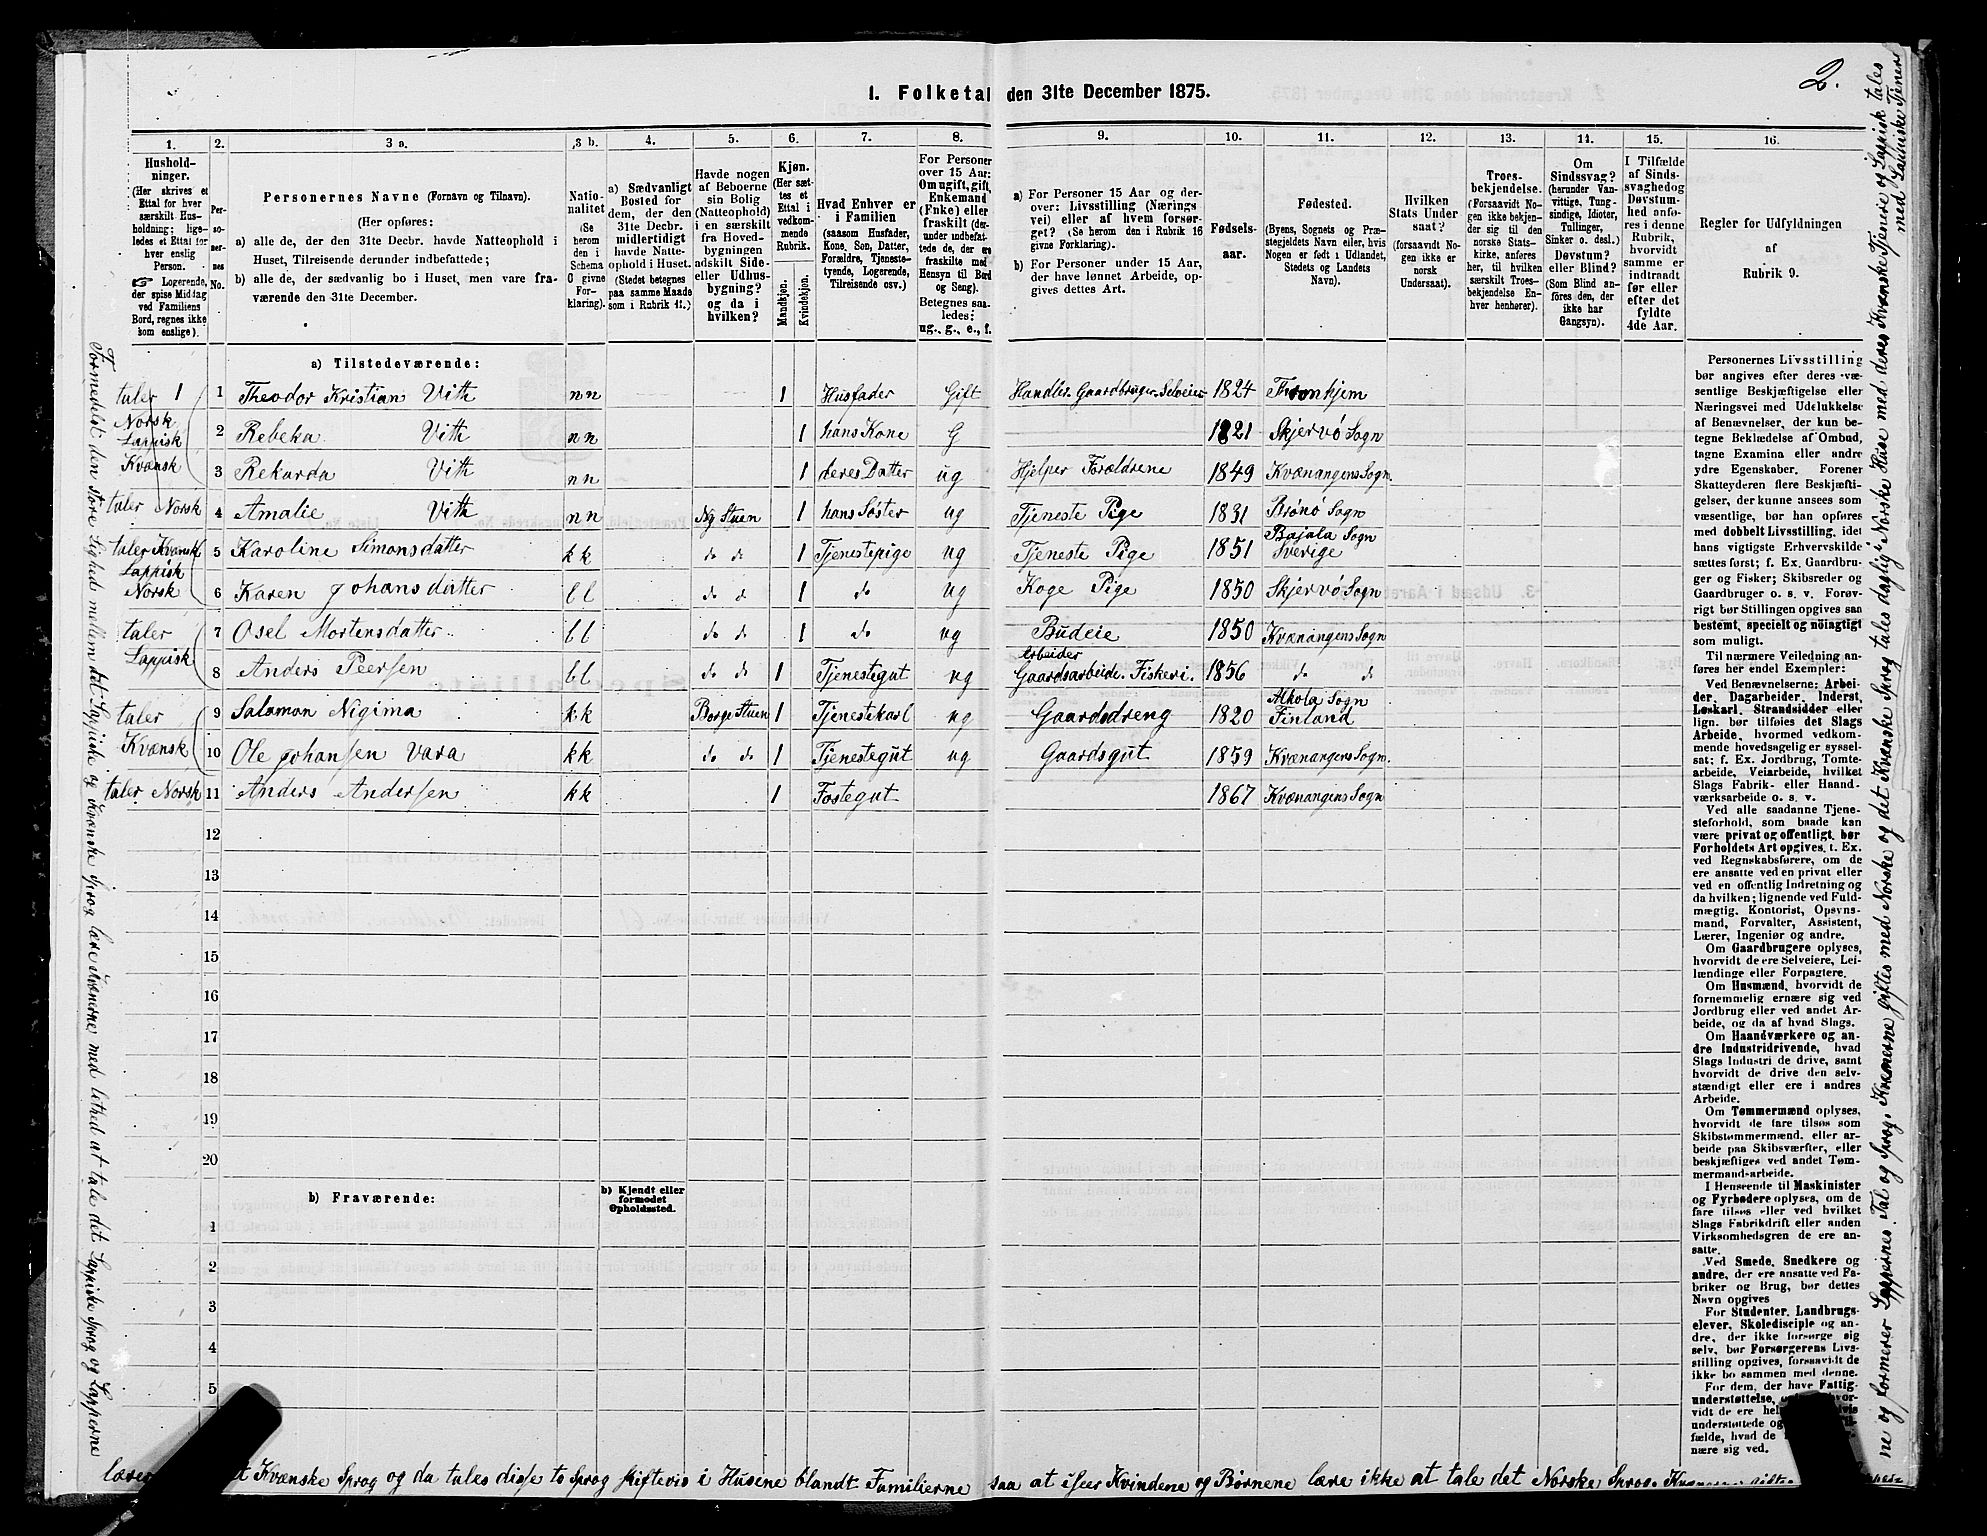 2.
1. Folketal den 31te December 1875.
1. 2. 3 a. 3 b. 4. 5. 6. 7. 8. 9. 10. 11. 12. 13. 14. 15. 16.
Hushold-
ninger.
(Her skrives et
Ettal for hver
særskilt Hus-
holdning; lige-
ledes et Ettal for
hver enslig
Person.
☞ Logerende,
der spise Middag
ved Familiens
Bord, regnes ikke
som enslige).
Per-
so-
ner-
nes
No.
Personernes Navne (Fornavn og Tilnavn).
(Her opføres:
a) alle de, der den 31te Decbr. havde Natteophold i
Huset, Tilreisende derunder indbefattede;
b) alle de, der sædvanlig bo i Huset, men vare fra-
værende den 31te December.
Natio-
nalitet
(Se
herom
den i
Schema
O givne
For-
klaring).
a) Sædvanligt
Bosted for
dem, der den
31te Decbr.
midlertidigt
havde Natte-
ophold i Huset.
(Stedet betegnes
paa samme Maade
som i Rubrik 11.)
Havde nogen
af Beboerne
sin Bolig
(Natteophold)
i en særskilt
fra Hoved-
bygningen
adskilt Side-
eller Udhus-
bygning?
og da i
hvilken?
Kjøn.
(Her sæt-
tes et
Ettal i
vedkom-
mende
Rubrik.
Mandkjøn.
Kvindekjøn.
Hvad Enhver er
i Familien
(saasom Husfader,
Kone, Søn, Datter,
Forældre, Tjeneste-
tyende, Logerende,
Tilreisende osv.)
For Personer
over 15 Aar:
Om ugift, gift,
Enkemand
(Enke) eller
fraskilt (der-
under indbefat-
tede de, der ere
fraskilte med
Hensyn til Bord
og Seng).
Betegnes saa-
ledes:
ug., g., e., f.
a) For Personer 15 Aar og der-
over: Livsstilling (Nærings-
vei) eller af hvem forsør-
get? (Se herom den i Rubrik 16
givne Forklaring).
b) For Personer under 15 Aar,
der have lønnet Arbeide, op-
gives dettes Art.
Fødsels-
aar.
Fødested.
(Byens, Sognets og Præ-
stegjeldets Navn eller, hvis
Nogen er født i Udlandet,
Stedets og Landets
Navn).
Hvilken
Stats Under-
saat?
(forsaavidt No-
gen ikke er
norsk
Undersaat).
Troes-
bekjendelse.
(Forsaavidt No-
gen ikke bekjen-
der sig til den
norske Stats-
kirke, anføres
her, til hvilken
særskilt Troes-
bekjendelse En-
hver henhører).
Om
Sindssvag?
(herunder Van-
vittige, Tung-
sindige, Idioter,
Tullinger,
Sinker o. desl.)
Døvstum?
eller Blind?
(Som Blind an-
føres den, der
ikke har
Gangsyn).
I Tilfælde
af Sinds-
svaghed og
Døvstum-
hed anfø-
res i denne
Rubrik,
hvorvidt
samme er
indtraadt
før eller
efter det
fyldte
4de Aar.
Regler for Udfyldningen
af
Rubrik 9.
a) Tilstedeværende:
taler 1 1 Theodor Kristian Vith nn 1 Husfader Gift Handler Gaardbruger Selveier 1824 Thronhjem
Norsk
Lappisk 2 Rebeka Vith nn 1 hans Kone G 1821 Skjervø Sogn
Kvænsk 3 Rekarda Vith nn 1 deres Datter ug Hjelper Forældrene 1849 Kvænangens Sogn
taler Norsk 4 Amalie Vith nn Ny Stuen 1 hans Søster ug Tjeneste Pige 1831 Brønø Sogn
taler Kvænsk 5 Karoline Simonsdatter kk do do 1 Tjenestepige ug Tjeneste Pige 1851 Bajala Sogn Sverige
Lappisk
Norsk 6 Karen Johansdatter ll do do 1 do ug Koge Pige 1850 Skjervø Sogn
taler 7 Osel Mortensdatter ll do do 1 do ug Budeie 1850 Kvænangens Sogn
Lappisk 8 Anders Peersen ll do do 1 Tjenestegut ug Arbeider Gaardsarbeide. Fiskeri. 1856 do do
taler 9 Salamon Nigima kk Borge Stuen 1 Tjenestekarl ug Gaardsdreng 1820 Alkola Sogn Finland
Kvænsk 10 Ole Johansen Vara kk do do 1 Tjenestegut ug Gaardsgut 1859 Kvænangens Sogn.
taler Norsk 11 Anders Andersen kk 1 Fostegut 1867 Kvænangens Sogn
12
13
14
15
16
17
18
19
20
b) Fraværende:
b) Kjendt eller
formodet
Opholdssted.
1
2
3
4
5
Personernes Livsstilling
bør angives efter deres væ-
sentlige Beskjæftigelse eller
Næringsvei med Udelukkelse
af Benævnelser, der kun be-
tegne Beklædelse af Ombud,
tagne Examina eller andre
ydre Egenskaber. Forener
Skatteyderen flere Beskjæfti-
gelser, der kunne ansees som
væsentlige, bør han opføres
med dobbelt Livsstilling, idet
hans vigtigste Erhvervskilde
sættes først; f. Ex. Gaardbru-
ger og Fisker; Skibsreder og
Gaardbruger o. s. v. Forøv-
rigt bør Stillingen opgives saa
bestemt, specielt og nøiagtigt
som muligt.
Til nærmere Veiledning an-
føres her endel Exempler:
Ved Benævnelserne: Arbei-
der, Dagarbeider, Inderst,
Løskarl, Strandsidder eller
lign. bør tilføies det Slags
Arbeide, hvormed vedkom-
mende hovedsagelig er syssel-
sat; f. Ex. Jordbrug, Tomte-
arbeide, Veiarbeide, hvilket
Slags Fabrik- eller Haand-
værksarbeide o. s. v.
Ved alle saadanne Tjene-
steforhold, som baade kan
være privat og offentligt, bør
Forholdets Art opgives, t. Ex.
ved Regnskabsførere, om de
ere ansatte ved en privat eller
ved en offentlig Indretning og
da hvilken; lignende ved Fuld-
mægtig, Kontorist, Opsyns-
mand, Forvalter, Assistent,
Lærer, Ingeniør og andre.
Om Gaardbrugere oplyses,
hvorvidt de ere Selveiere, Lei-
lændinge eller Forpagtere.
Om Husmænd, hvorvidt de
fornemmelig ernære sig ved
Jordbrug eller ved andet Ar-
beide, og da af hvad Slags.
Om Haandværkere og an-
dre Industridrivende, hvad
Slags Industri de drive, samt
hvorvidt de drive den selv-
stændigt eller ere i andres
Arbeide.
Om Tømmermænd oplyses,
hvorvidt de fare tilsøs som
Skibstømmermænd, eller ar-
beide paa Skibsværfter, eller
beskjæftiges ved andet Tøm-
mermandsarbeide.
I Henseende til Maskinister
og Fyrbødere oplyses, om de
fare tilsøs eller ved hvilket
Slags Fabrikdrift eller anden
Virksomhedsgren de ere an-
satte.
Ved Smede, Snedkere og
andre, der ere ansatte ved Fa-
briker og Brug, bør dettes
Navn opgives
For Studenter, Landbrugs-
elever, Skoledisciple og an-
dre, der ikke forsørge sig
selv, bør Forsørgerens Livs-
stilling opgives, forsaavidt de
ikke bo sammen med denne.
For dem, der have Fattig-
understøttelse,
vidt de ere
understøttede og
fælde, hvad de
nære sig ved.
Formedelst den store Lighed mellem det Lappiske og Kvænske Sprog lære Kvænerne med lethed at tale det Lappiske Sprog og Lapperne
lærer Kvænske Sprog og da tales disse to Sprog skiftevis i Husene blandt Familierne saa at især Kvindene og Børnene lære ikke at tale det Norske Sprog.
ne og formerer Lappernes Tal og Sprog. Kvænerne giftes med Norske og det Kvænske Sprog tales daglig i Norske Huse med deres Kvænske Tjenere og Lappisk tales
med Lappiske Tjenere